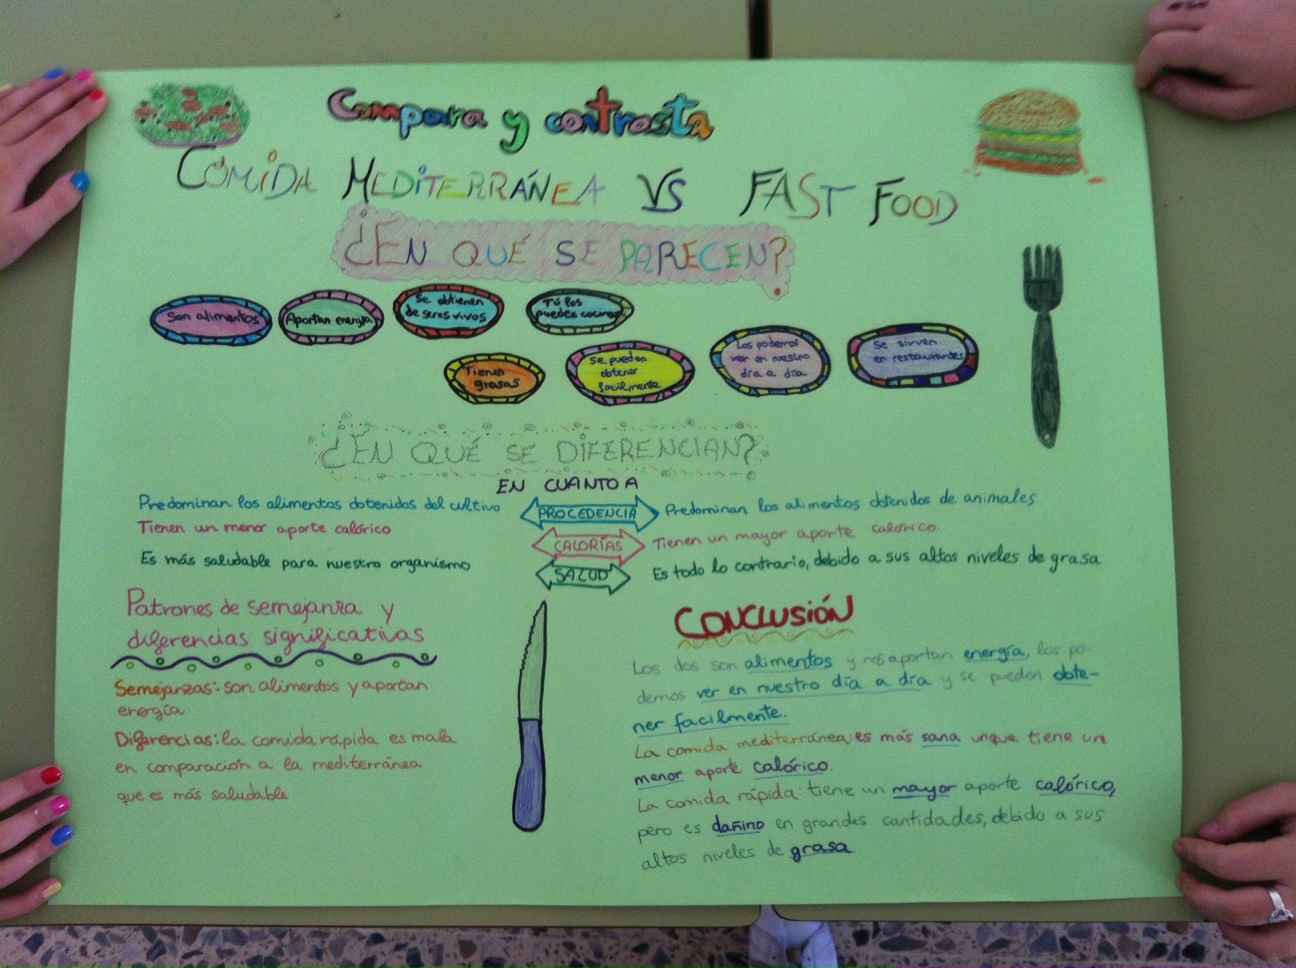 Compara y contrasta
COMIDA MEDITERRÁNEA VS FAST FOOD
¿EN QUÉ SE PARECEN?
Son alimentos
Aportan energía
Se obtienen
de seres vivos
Tú los
puedes cocinar
Tienen
grasas
Se pueden
obtener
facilmente
Los podemos
ver en nuestro
día a día
Se sirven
en restaurantes
¿EN QUÉ SE DIFERENCIAN?
EN CUANTO A
Predominan los alimentos obtenidos del cultivo
PROCEDENCIA
Predominan los alimentos obtenidos de animales
Tienen un menor aporte calórico
CALORÍAS
Tienen un mayor aporte calórico.
Es más saludable para nuestro organismo
SALUD
Es todo lo contrario, debido a sus altos niveles de grasa
Patrones de semejanza y
diferencias significativas
Semejanzas: son alimentos y aportan
energía
Diferencias: la comida rápida es mala
en comparación a la mediterránea
que es más saludable
CONCLUSIÓN
Los dos son alimentos y nos aportan energía, los po-
demos ver en nuestro día a día y se pueden obte-
ner facilmente.
La comida mediterránea: es más sana unque tiene un
menor aporte calórico.
La comida rápida: tiene un mayor aporte calórico,
pero es dañino en grandes cantidades, debido a sus
altos niveles de grasa.